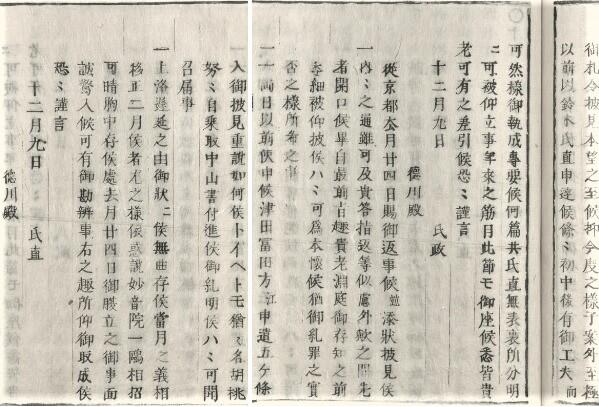 御札令披見本望之至候抑今度之様子案外至極
以前以鈴木氏直申達候條ミ初中後有御工夫而
可然様御執成専要候何篇共氏直無表裏所分明
ニ可被仰立事年来之筋目此節モ御座候悉皆貴
老可有之差引候恐ミ謹言
十二月九日 氏政
徳川殿
従京都去月廿四日賜御返事候並添状披見侯
一内ミ之通雖可及貴答指返等似慮外歟之間先
者閉口候畢自最前古趣貴老淵底御存知之前
委細被仰披侯ハミ可為本懐候猶御糺罪之實
否之様所希之事
一一両日以前使申候津田冨田方江申遣五ケ條
入御披見重説如何候トイヘトモ猶ミ名胡桃
努ミ自乗取中山書付進侯御糺明侯ハミ可聞
召届事
一上洛遅延之由御状ニ侯無曲存侯當月之義相
移正二月侯者尤之様侯惑説妙音院一鴎相招
可晴胸中存候處去月廿四日御腹立之御事面
誠驚入候可有御勘辨事右之趣所仰御取成侯
恐ミ謹言
十二月九日 氏直
徳川殿